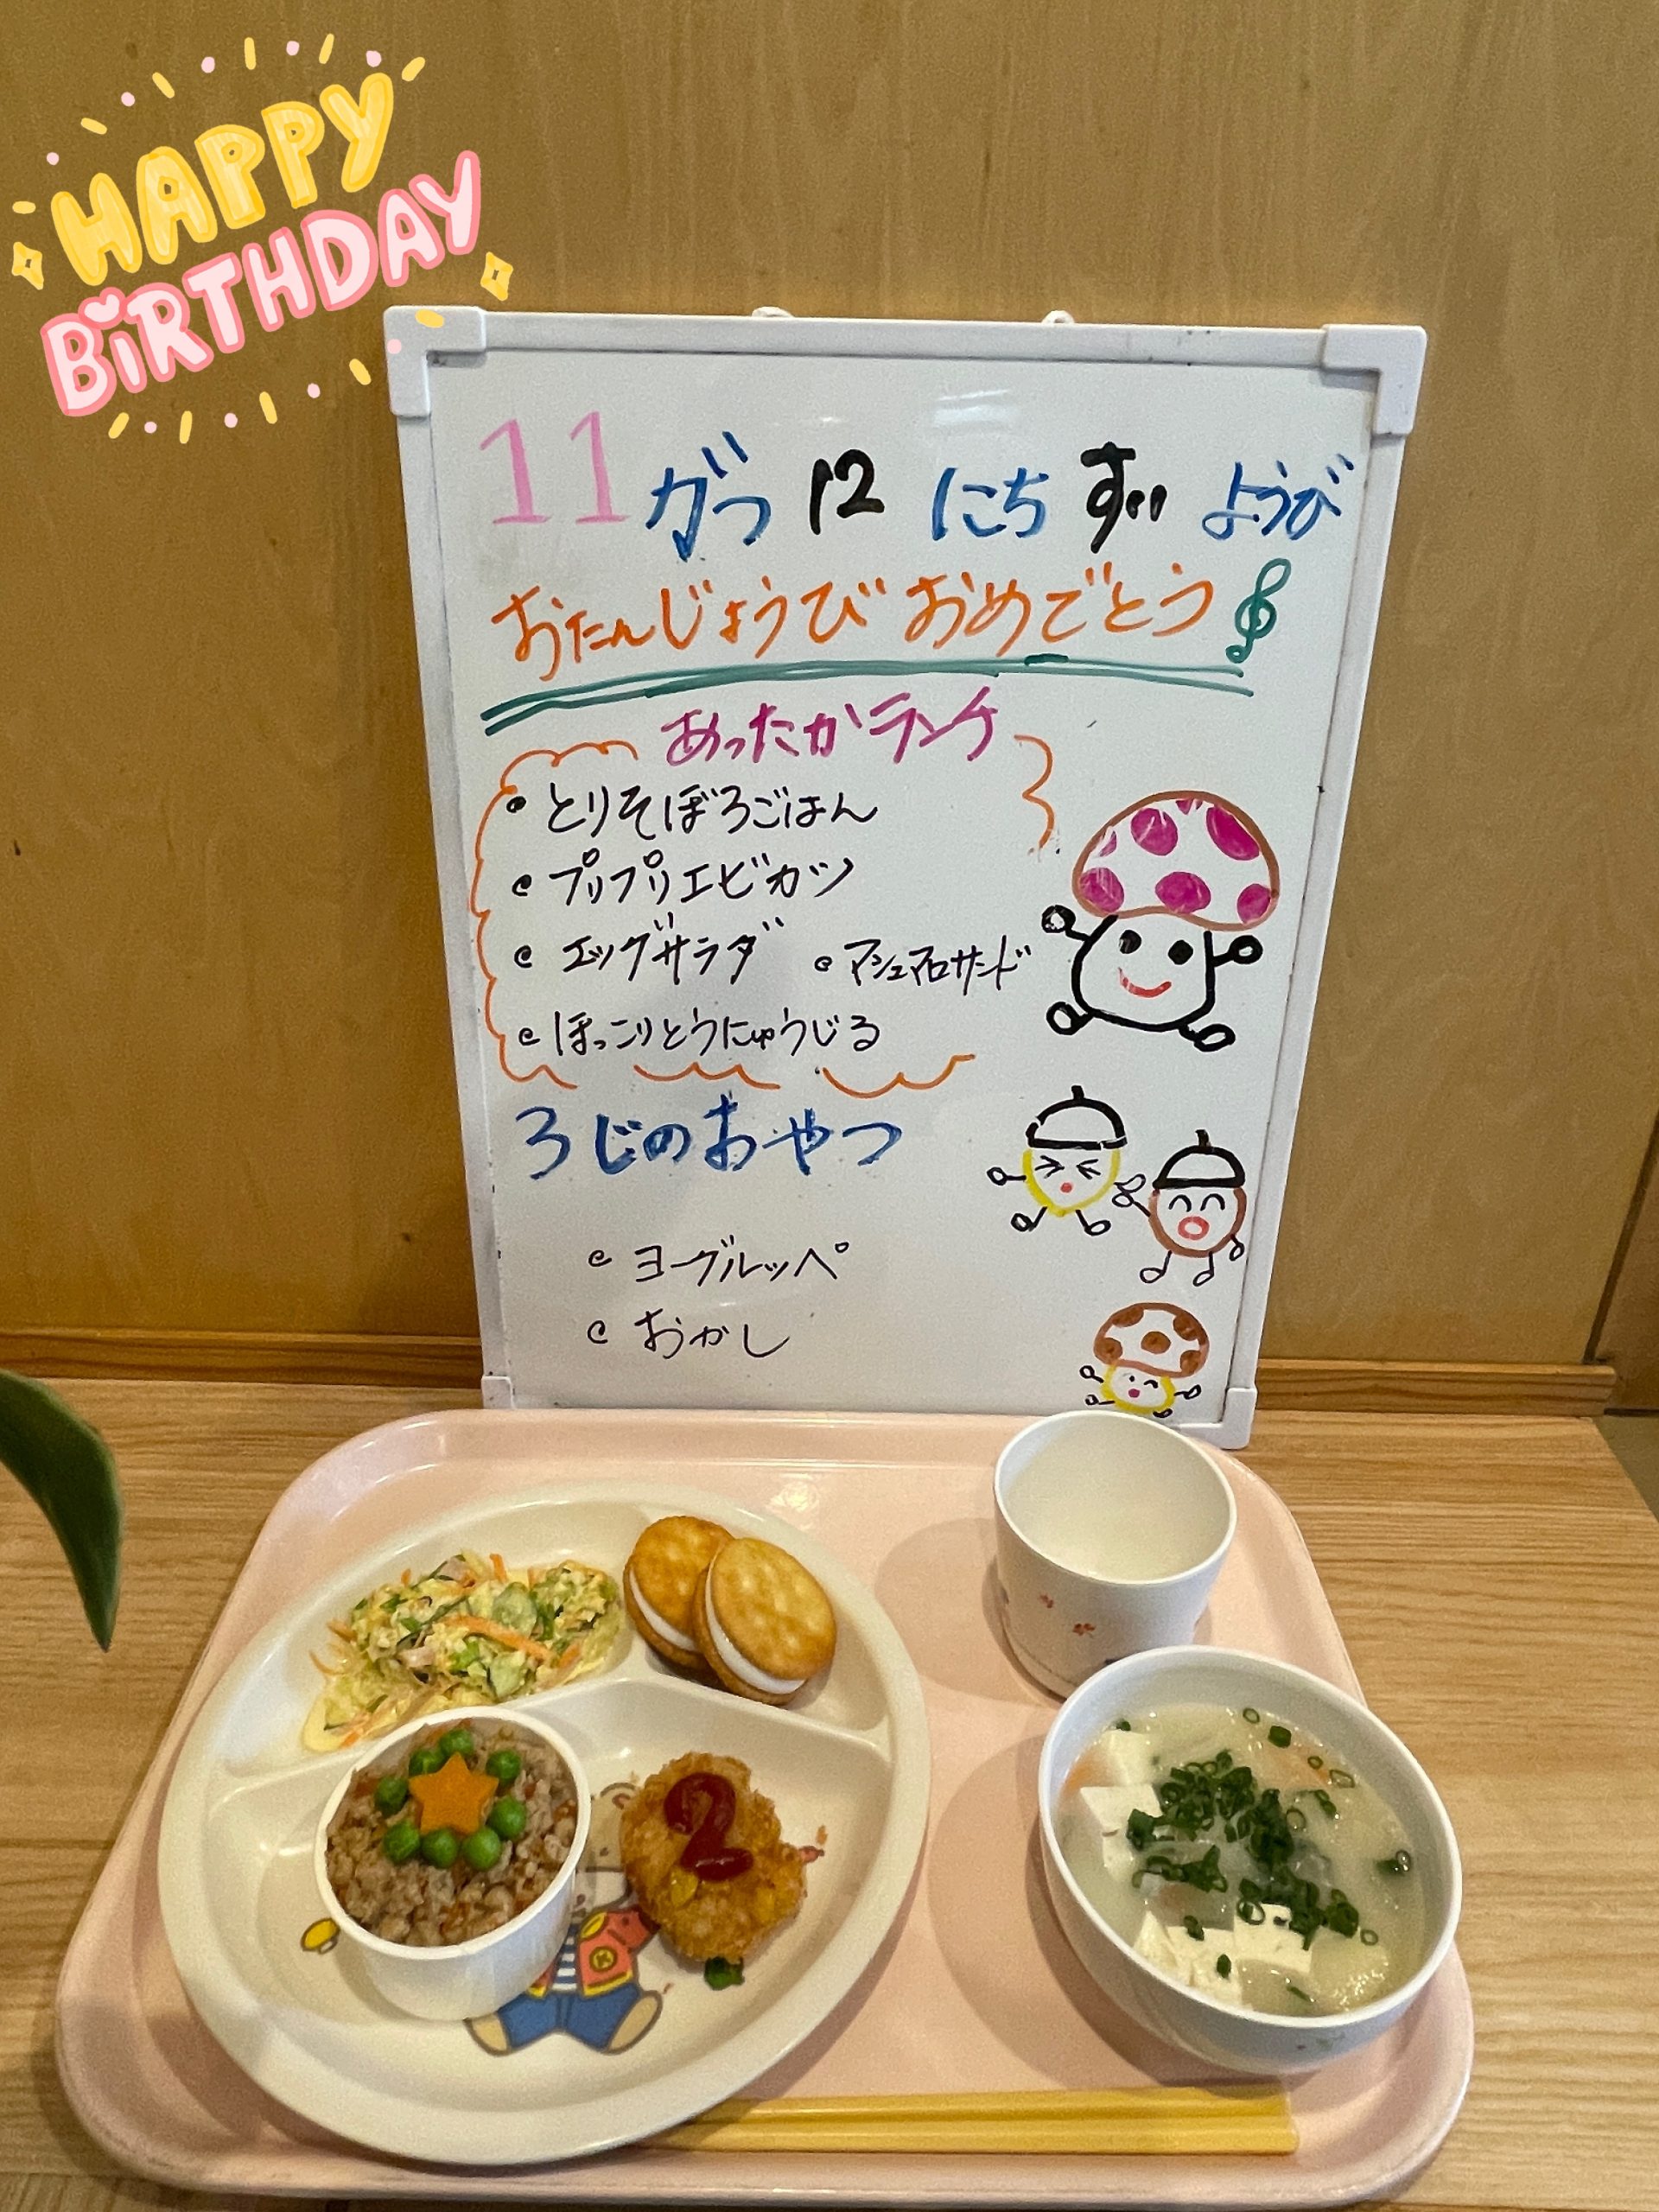 HAPPY
BiRTHDAY
11 がつ 12 にち すい ようび
おたんじょうび おめでとう
あったかランチ
・とりそぼろごはん
・プリプリエビカツ
・エッグサラダ ・マシュマロサンド
・ほっこりとうにゅうじる
3じのおやつ
・ヨーグルッペ
・おかし
2